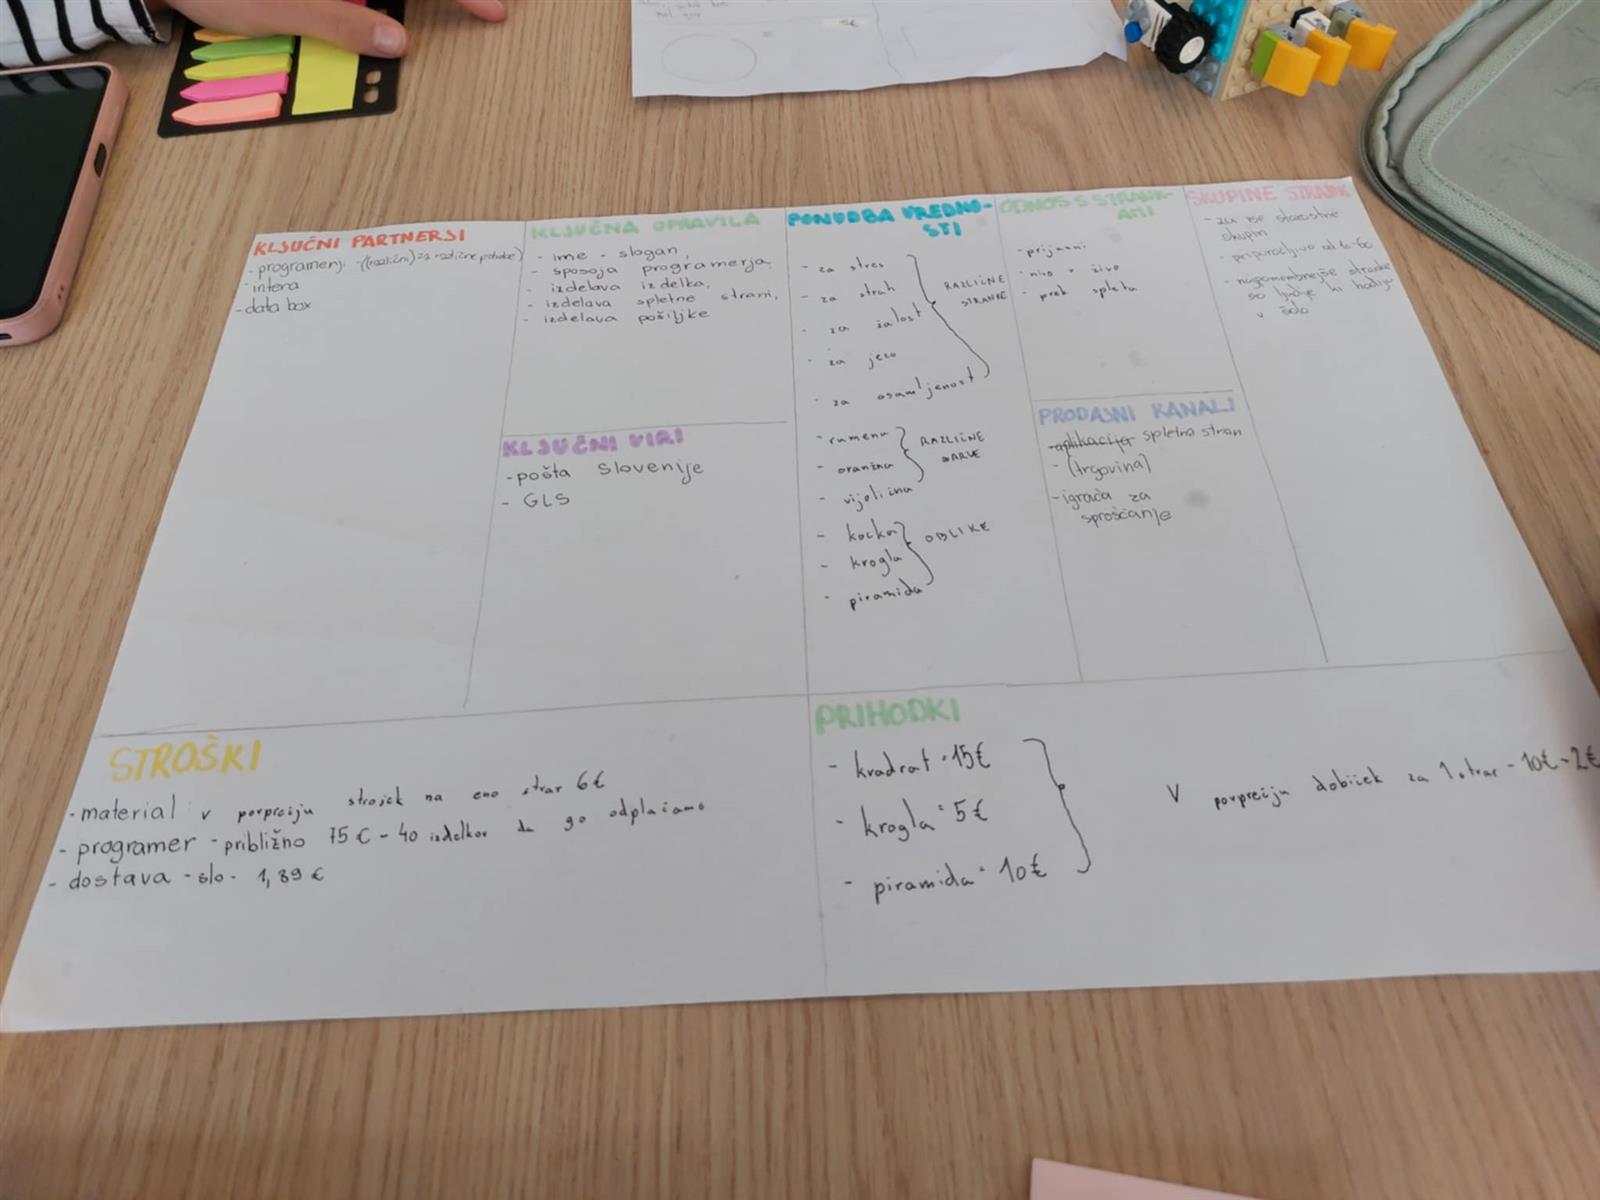 KLJUČNI PARTNERJI
- programerji - ((različni) za različne potrebe)
- intera
- data box
KLJUČNA OPRAVILA
- ime - slogan,
- sposoja programerja,
- izdelava izdelka,
- izdelava spletne strani,
- izdelava pošiljke
KLJUČNI VIRI
- pošta Slovenije
- GLS
PONUDBA VREDNO-
STI
- za stres
- za strah
- za žalost
- za jezo
- za osamljenost
RAZLIČNE
STRANKE
- rumena
- oranžna
- vijolična
RAZLIČNE
BARVE
- kocka
- krogla
- piramida
OBLIKE
ODNOS S STRANK-
AMI
- prijazni
- v živo
- prek spleta
PRODAJNI KANALI
- aplikacija spletna stran
- (trgovina)
- igrača za
sproščanje
SKUPINE STRANK
- za vse starostne
skupin
- priporočljivo od 6-60
- najpomembnejše stranke
so ljudje ki hodijo
v šolo
STROŠKI
- material: v povprečju strošek na eno stvar 6€
- programer - približno 75€ - 40 izdelkov da ga odplačamo
- dostava - slo - 1,89€
PRIHODKI
- kvadrat = 15€
- krogla = 5€
- piramida = 10€
V povprečju dobiček za 1 stvar - 10€ - 2€